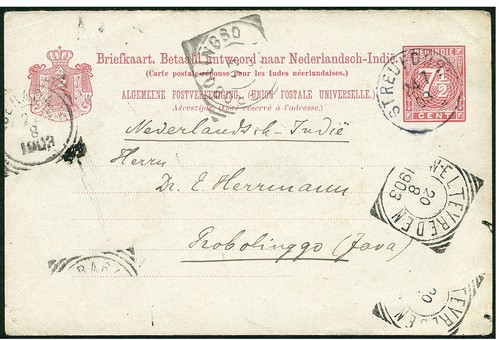 Briefkaart. Betaald antwoord naar Nederlandsch-Indië
(Carte postale-réponse pour les Indes néerlandaises.)
ALGEMEENE POSTVEREENIGING. (UNION POSTALE UNIVERSELLE.)
Adreszijde. (Côté réservé à l'adresse.)
CENT
Nederlandsch-Indië
Herrn
Dr. E. Herrmann
Probolinggo (Java)
WELTEVREDEN
20
8
1903
8
1903
20